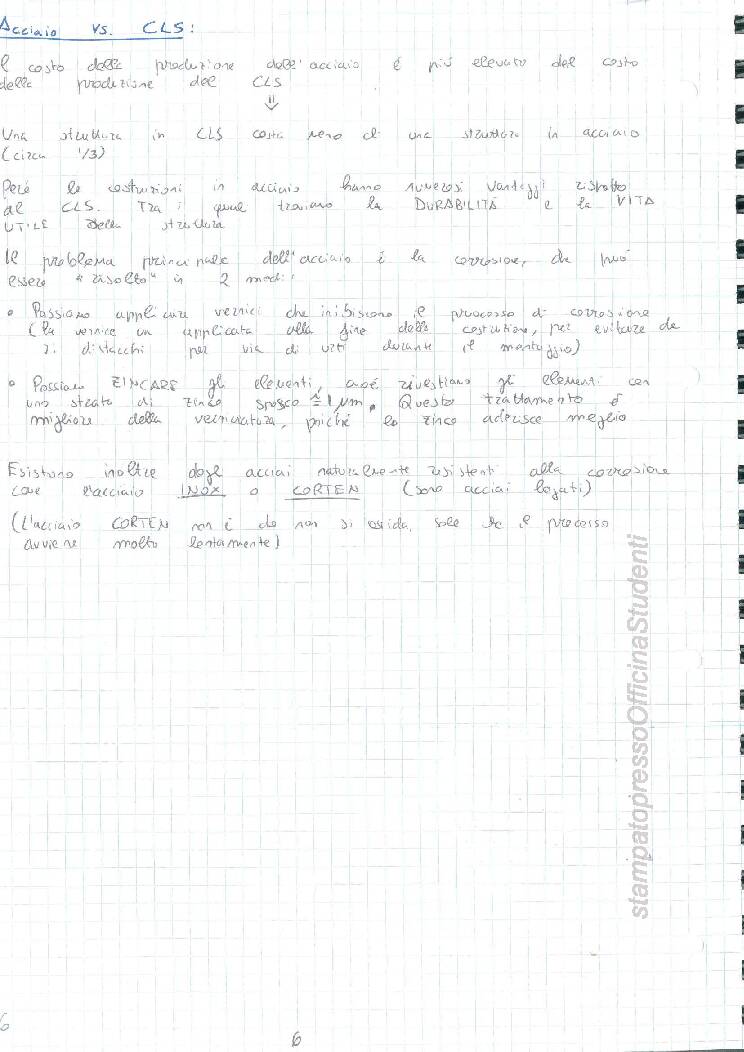 Acciaio vs. CLS:
l costo della produzione dell'acciaio è più elevato del costo
della produzione del CLS
⇓
Una struttura in CLS costa meno di una struttura in acciaio
(circa 1/3)
Però le costruzioni in acciaio hanno numerosi vantaggi rispetto
al CLS. Tra i quali troviamo la DURABILITÀ e la VITA
UTILE della struttura
Il problema principale dell'acciaio è la corrosione, che può
essere "risolto" in 2 modi:
• Possiamo applicare vernici che inibiscono il processo di corrosione
(la vernice va applicata alla fine della costruzione, per evitare che
si distacchi per via di urti durante il montaggio)
• Possiamo ZINCARE gli elementi, cioè rivestiamo gli elementi con
uno strato di zinco spesso ≅ 1 μm. Questo trattamento è
migliore della verniciatura, poiché lo zinco aderisce meglio
Esistono inoltre degli acciai naturalmente resistenti alla corrosione
come l'acciaio INOX o CORTEN (sono acciai legati)
(L'acciaio CORTEN non è che non si ossida, solo che il processo
avviene molto lentamente)
stampatopressoOfficinaStudenti
6
6